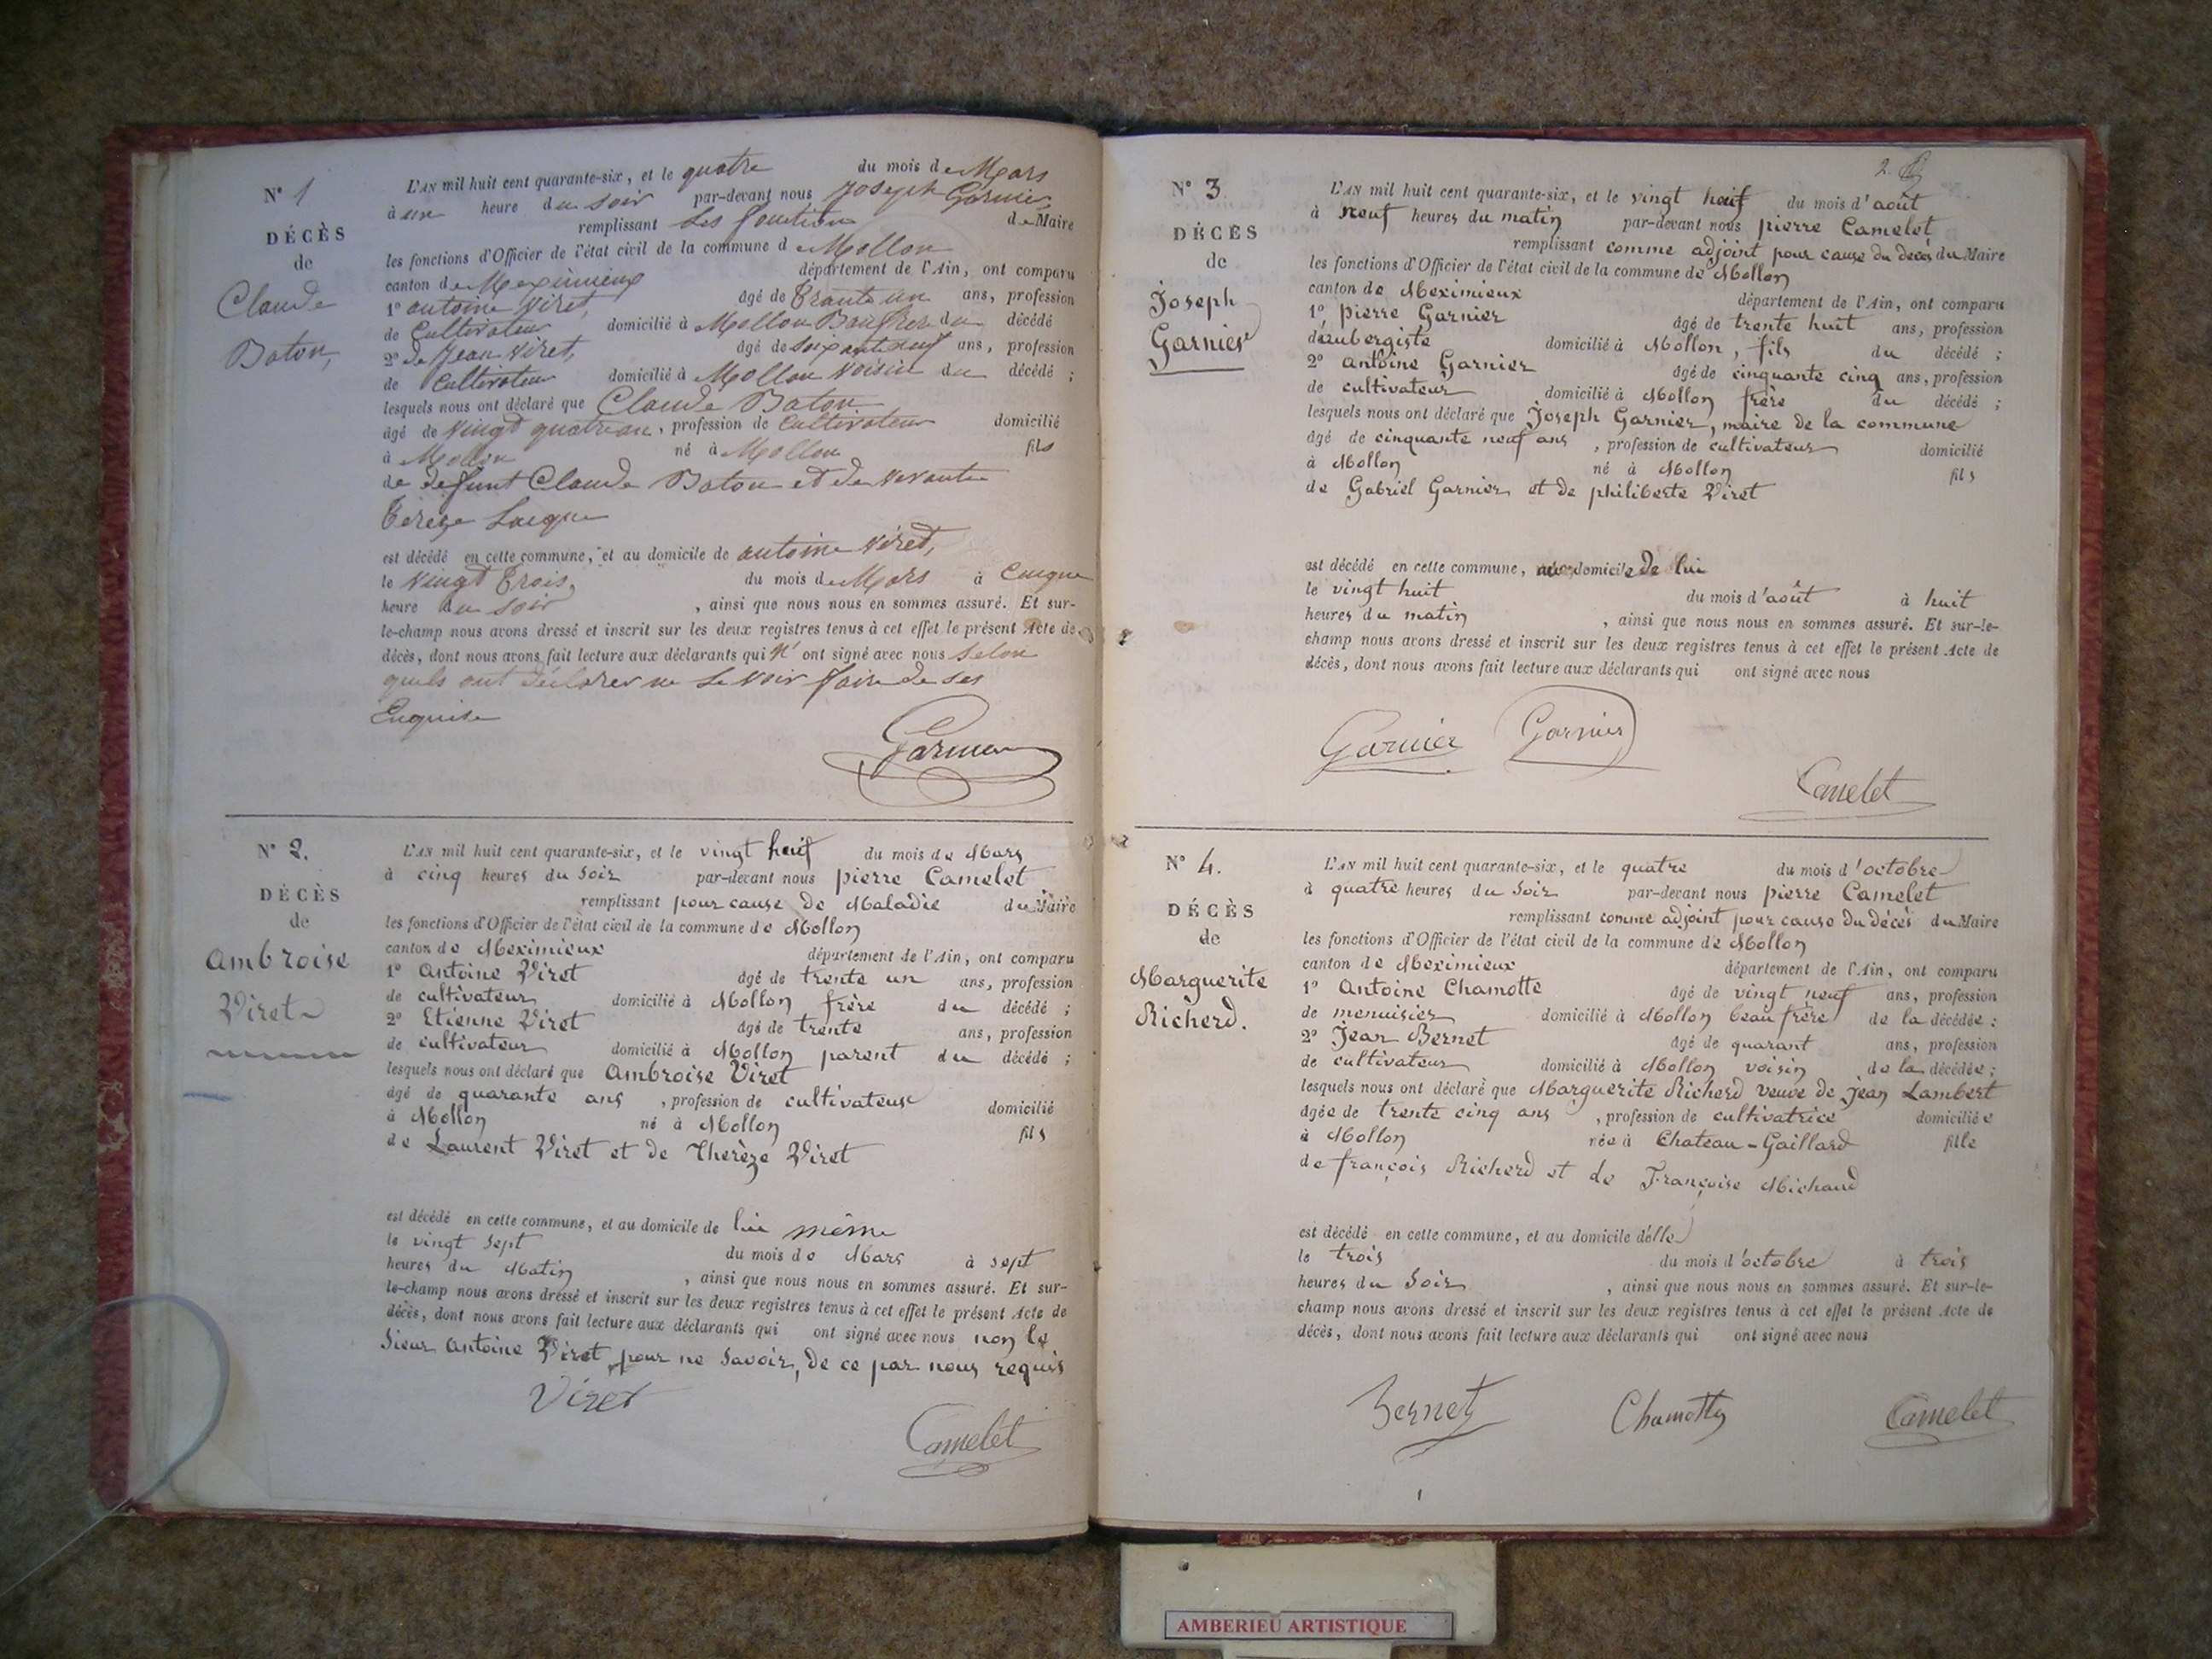 N° 1
DÉCÈS
de
Claude
Baton,
L'AN mil huit cent quarante-six, et le quatre du mois de Mars
à une heure du soir par-devant nous Joseph Garnier
remplissant les fonction de Maire
les fonctions d'Officier de l'état civil de la commune de Mollon
canton de Meximieux département de l'Ain, ont comparu
1° antoine Viret, âgé de trante un ans, profession
de Cultivateur domicilié à Mollon Baufrer du décédé
2° de Jean Viret, âgé de soixante neuf ans, profession
de Cultivateur domicilié à Mollon voisin du décédé ;
lesquels nous ont déclaré que Claude Baton
âgé de vingt quatre an, profession de Cultivateur domicilié
à Mollon né à Mollon fils
de defunt Claude Baton et de vivante
Terese
est décédé en cette commune, et au domicile de antoine Viret,
le vingt trois, du mois de Mars à Cinque
heure du soir, ainsi que nous nous en sommes assuré. Et sur-
le-champ nous avons dressé et inscrit sur les deux registres tenus à cet effet le présent Acte de
décès, dont nous avons fait lecture aux déclarants qui n' ont signé avec nous selon
quils ont déclarer ne savoir faire de ses
Enquise
Garnier
N° 2.
DÉCÈS
de
Ambroise
Viret
L'AN mil huit cent quarante-six, et le vingt huit du mois de Mars
à cinq heures du Soir par-devant nous pierre Camelet
remplissant pour cause de Maladie du Maire
les fonctions d'Officier de l'état civil de la commune de Mollon
canton de Meximieux département de l'Ain, ont comparu
1° Antoine Viret âgé de trente un ans, profession
de cultivateur domicilié à Mollon frère du décédé ;
2° Etienne Viret âgé de trente ans, profession
de cultivateur domicilié à Mollon parent du décédé ;
lesquels nous ont déclaré que Ambroise Viret
âgé de quarante ans, profession de cultivateur domicilié
à Mollon né à Mollon fils
de Laurent Viret et de Therèze Viret
est décédé en cette commune, et au domicile de lui même
le vingt Sept du mois de Mars à sept
heures du Matin, ainsi que nous nous en sommes assuré. Et sur-
le-champ nous avons dressé et inscrit sur les deux registres tenus à cet effet le présent Acte de
décès, dont nous avons fait lecture aux déclarants qui ont signé avec nous non le
Sieur Antoine Viret pour ne Savoir, de ce par nous requis
Viret
Camelet
2.
N° 3.
DÉCÈS
de
Joseph
Garnier
L'AN mil huit cent quarante-six, et le vingt huit du mois d'août
à neuf heures du matin par-devant nous pierre Camelet
remplissant comme adjoint pour cause du decès du Maire
les fonctions d'Officier de l'état civil de la commune de Mollon
canton de Meximieux département de l'Ain, ont comparu
1° pierre Garnier âgé de trente huit ans, profession
d'aubergiste domicilié à Mollon, fils du décédé ;
2° Antoine Garnier âgé de cinquante cinq ans, profession
de cultivateur domicilié à Mollon frère du décédé ;
lesquels nous ont déclaré que Joseph Garnier, maire de la commune
âgé de cinquante neuf ans, profession de cultivateur domicilié
à Mollon né à Mollon fils
de Gabriel Garnier et de philiberte Viret
est décédé en cette commune, domicile de lui
le vingt huit du mois d'août à huit
heures du matin, ainsi que nous nous en sommes assuré. Et sur-le-
champ nous avons dressé et inscrit sur les deux registres tenus à cet effet le présent Acte de
décès, dont nous avons fait lecture aux déclarants qui ont signé avec nous
Garnier Garnier
Camelet
N° 4.
DÉCÈS
de
Marguerite
Richerd.
L'AN mil huit cent quarante-six, et le quatre du mois d'octobre
à quatre heures du Soir par-devant nous pierre Camelet
remplissant comme adjoint pour cause du décès du Maire
les fonctions d'Officier de l'état civil de la commune de Mollon
canton de Meximieux département de l'Ain, ont comparu
1° Antoine Chamotte âgé de vingt neuf ans, profession
de menuisier domicilié à Mollon beau frère de la décédée ;
2° Jean Bernet âgé de quarant ans, profession
de cultivateur domicilié à Mollon voisin de la décédée ;
lesquels nous ont déclaré que Marguerite Richerd veuve de Jean Lambert
âgée de trente cinq ans, profession de cultivatrice domiciliée
à Mollon née à Chateau-Gaillard fille
de françois Richerd et de Françoise Michaud
est décédé en cette commune, et au domicile d'elle
le trois du mois d'octobre à trois
heures du Soir, ainsi que nous nous en sommes assuré. Et sur-le-
champ nous avons dressé et inscrit sur les deux registres tenus à cet effet le présent Acte de
décès, dont nous avons fait lecture aux déclarants qui ont signé avec nous
Bernet Chamotte Camelet
AMBERIEU ARTISTIQUE